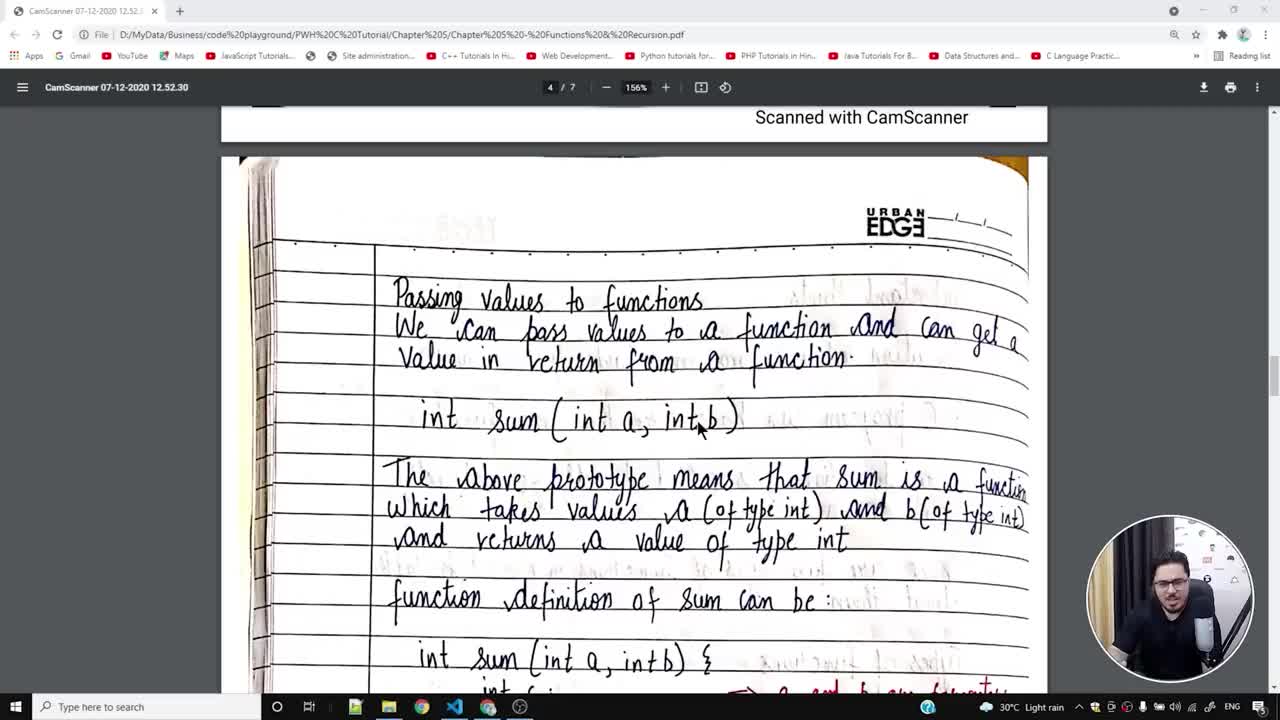 CamScanner 07-12-2020 12.52.3
File
D:/MyData/Business/code%20playground/PWH%20C%20Tutorial/Chapter%205/Chapter%205%20-%20Functions%20&%20Recursion.pdf
Apps
Gmail
YouTube
Maps
JavaScript Tutorials...
Site administration...
C++ Tutorials In Hi...
Web Development...
Python tutorials for...
PHP Tutorials in Hin...
Java Tutorials For B...
Data Structures and...
C Language Practic...
»
Reading list
CamScanner 07-12-2020 12.52.30
4 / 7
156%
Scanned with CamScanner
URBAN
EDGE
Passing values to functions
We can pass values to a function and can get a
value in return from a function.
int sum (int a, int b)
The above prototype means that sum is a function
which takes values a (of type int) and b (of type int)
and returns a value of type int
function definition of sum can be:
int sum (int a, int b) {
Type here to search
30°C Light rain
ENG